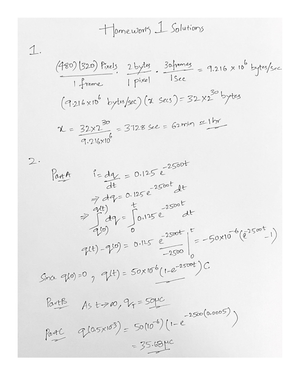 Homework 1 Solutions
1.
(480)(320) Pixels / 1 frame · 2 bytes / 1 pixel · 30 frames / 1 sec = 9.216 × 10^6 bytes/sec
(9.216×10^6 bytes/sec)(x secs) = 32×2^30 bytes
x = 32×2^30 / 9.216×10^6 = 3728 sec = 62 min ≈ 1 hr
2.
Part A i = dq/dt = 0.125 e^-2500t
⇒ dq = 0.125 e^-2500t dt
⇒ ∫_q(0)^q(t) dq = ∫_0^t 0.125 e^-2500t dt
q(t) - q(0) = 0.125 e^-2500t / -2500 |_0^t = -50×10^-6 (e^-2500t - 1)
Since q(0)=0, q(t) = 50×10^-6 (1-e^-2500t) C
Part B As t→∞, q_T = 50μC
Part C q(0.5×10^3) = 50(10^-6)(1-e^-2500(0.0005))
= 35.68μC